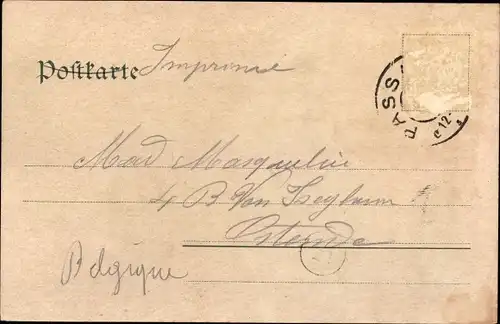 Postkarte Imprimé
PASS
12
Mad Masquelin
4 B Van Iseghem
Ostende
Belgique